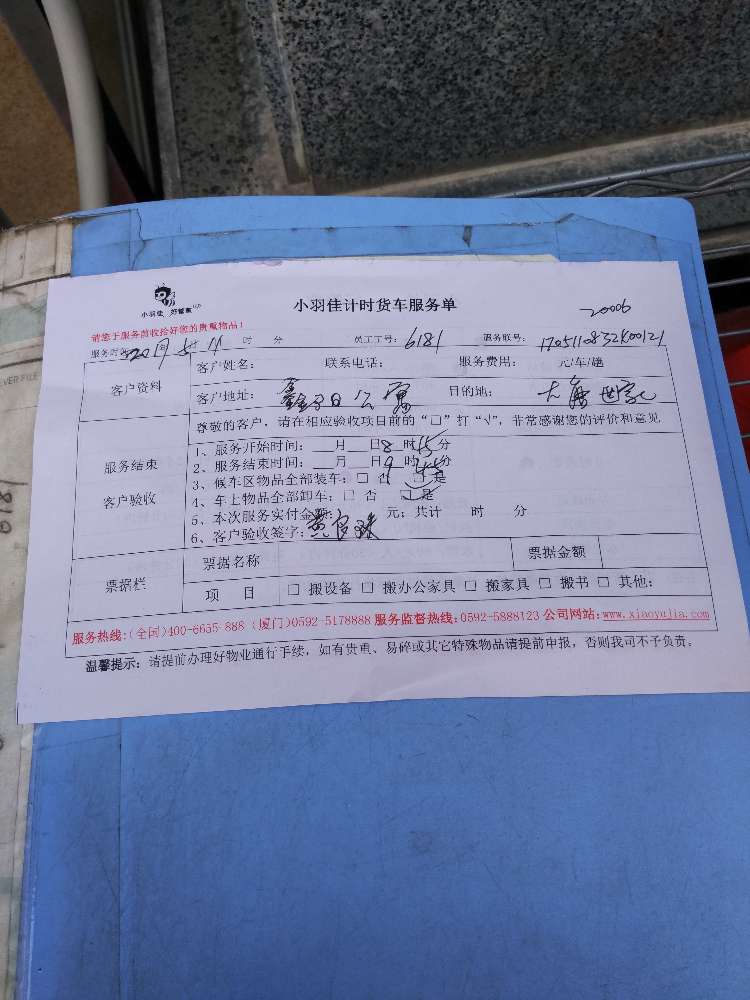 小羽佳 好管家
小羽佳计时货车服务单
20006
请您于服务前收拾好您的贵重物品！
服务时间 年 时 分 员工工号：6181 服务联号：1705110832K00121
客户资料
客户姓名： 联系电话： 服务费用： 元/车/趟
客户地址： 公寓 目的地： 世家
服务结束
客户验收
尊敬的客户，请在相应验收项目前的“□”打“√”，非常感谢您的评价和意见
1、服务开始时间：__月__日8时15分
2、服务结束时间：__月__日9时45分
3、候车区物品全部装车：□ 否 □是
4、车上物品全部卸车：□ 否 □是
5、本次服务实付金额： 元；共计 时 分
6、客户验收签字：黄
票据栏
票据名称 票据金额
项 目 □ 搬设备 □ 搬办公家具 □ 搬家具 □ 搬书 □ 其他：
服务热线：(全国)400-6655-888 (厦门)0592-5178888 服务监督热线：0592-5888123 公司网站：www.xiaoyujia.com
温馨提示：请提前办理好物业通行手续，如有贵重、易碎或其它特殊物品请提前申报，否则我司不予负责。